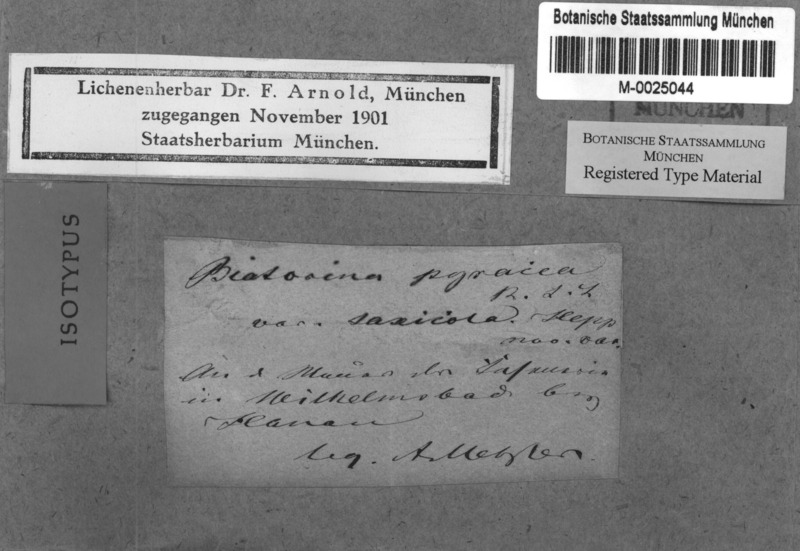 Botanische Staatssammlung München
M-0025044
MÜNCHEN
BOTANISCHE STAATSSAMMLUNG
MÜNCHEN
Registered Type Material
Lichenenherbar Dr. F. Arnold, München
zugegangen November 1901
Staatsherbarium München.
ISOTYPUS
Biatorina pyracea
var. saxicola. Hepp
nov. var.
An d. Mauer der
in Wilhelmsbad bey
Hanau
leg. A. Metzler.